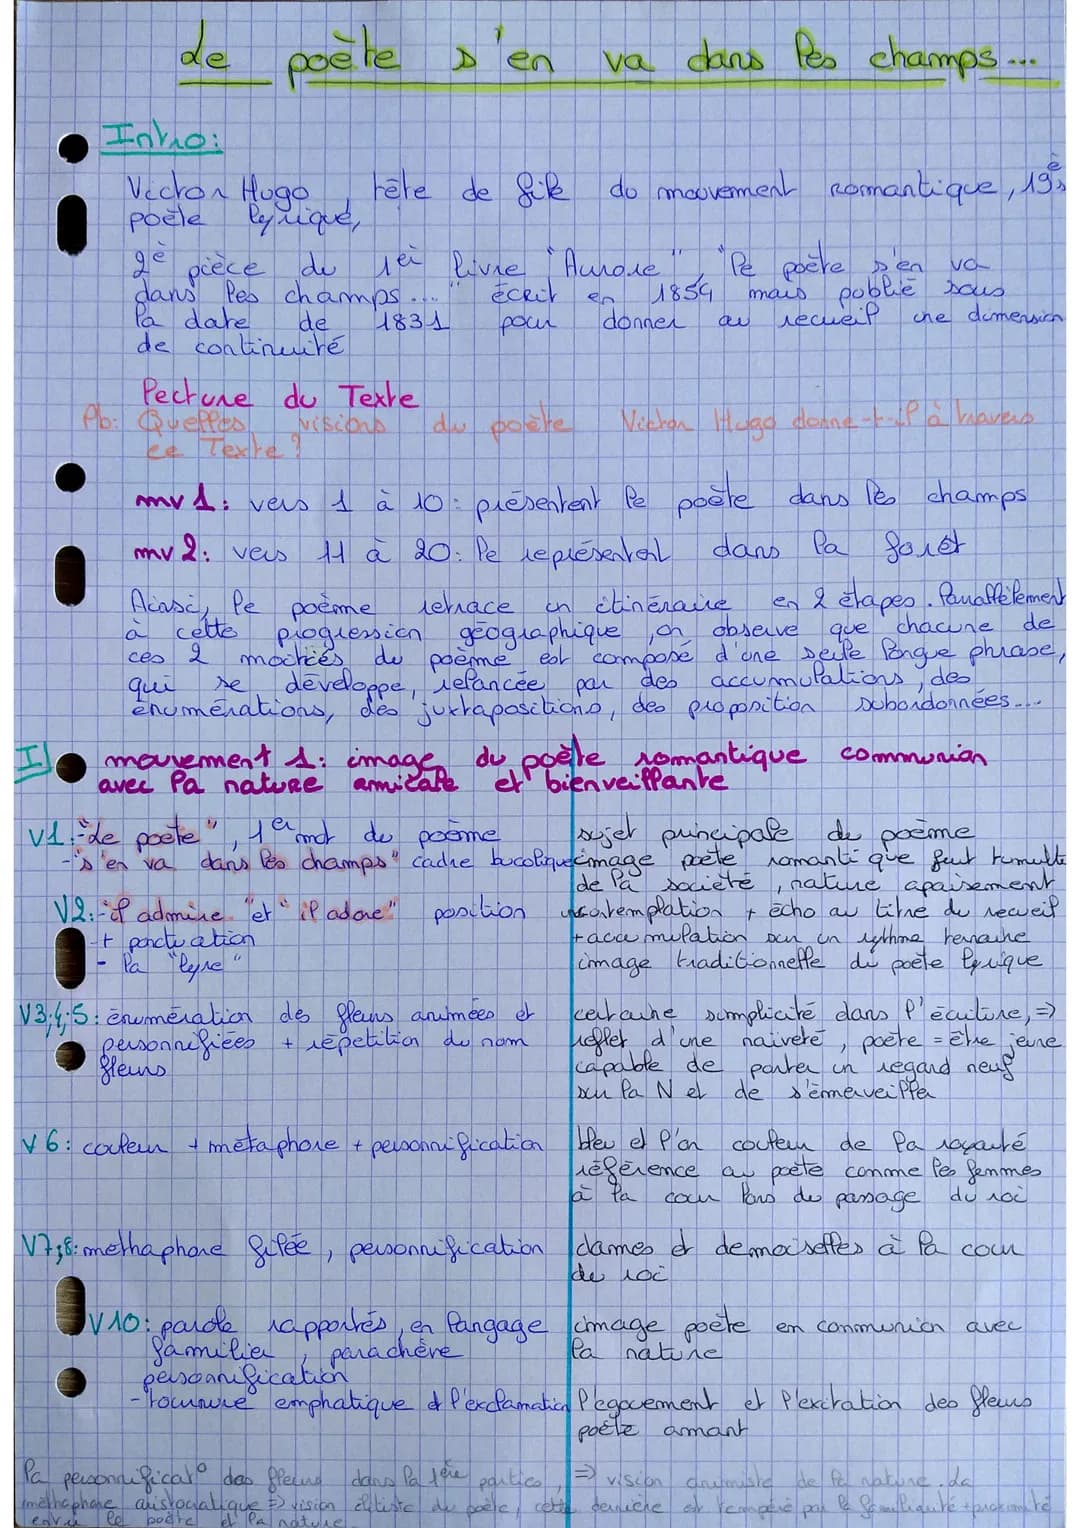 Le poète s'en va dans les champs...
Intro:
Victor Hugo, tête de file du mouvement romantique, 19è s
poète lyrique,
2è pièce du 1er livre "Aurore", "le poète s'en va
dans les champs..." écrit en 1854 mais publié sous
la date de 1831 pour donner au recueil une dimension
de continuité
lecture du Texte
Pb: Quelles visions du poète Victor Hugo donne-t-il à travers
ce Texte?
mv 1: vers 1 à 10: présentent le poète dans les champs
mv 2: vers 11 à 20: le représentent dans la forêt
Ainsi, le poème retrace un itinéraire en 2 étapes. Parallèlement
à cette progression géographique, on observe que chacune de
ces 2 moitiés du poème est composé d'une seule longue phrase,
qui se développe, relancée par des accumulations, des
énumérations, des juxtapositions, des proposition subordonnées...
I] mouvement 1: image du poète romantique communion
avec la nature amicale et bienveillante
V1:-"Le poète", 1er mot du poème sujet principale du poème
-"s'en va dans les champs" cadre bucolique image poète romantique fuit tumulte
de la société, nature apaisement
V2:-"il admire" et "il adore" position contemplation + écho au titre du recueil
+ ponctuation +accumulation sur un rythme ternaire
- la "lyre" image traditionnelle du poète lyrique
V3;4;5: énumération des fleurs animées et certaine simplicité dans l'écriture, =>
personnifiées + répétition du nom reflet d'une naïveté, poète = être jeune
fleurs capable de porter un regard neuf
sur la N et de s'émerveiller
V6: couleur + métaphore + personnification bleu et l'or couleur de la royauté
référence au poète comme les femmes
à la cour lors du passage du roi
V7;8: méthaphore filée, personnification dames et demoiselles à la cour
du roi
V10: parole rapportés, en langage image poète en communion avec
familier, parachève la nature
personnification
-tournure emphatique et l'exclamation l'égayement et l'excitation des fleurs
poète amant
la personnificat° des fleurs dans la 1ère parties, => vision animiste de la nature. La
méthaphore aristocratique => vision élitiste du poète, cette dernière est tempéré par la familiarité + proximité
entre le poète et la nature.